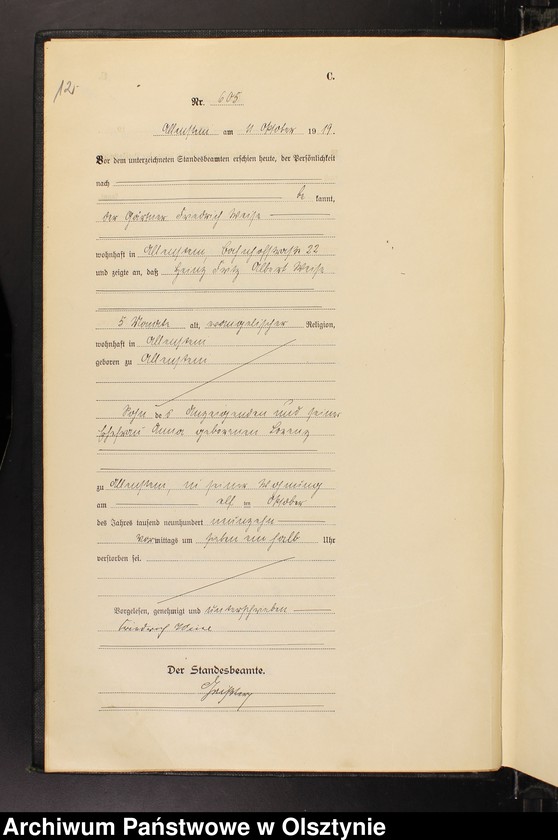 C.
12.
Nr. 605
Allenstein am 11 Oktober 19 19.
Vor dem unterzeichneten Standesbeamten erschien heute, der Persönlichkeit
nach
be kannt,
der Gärtner Friedrich Weise
wohnhaft in Allenstein, Bahnhofstraße 22
und zeigte an, daß Heinz Fritz Albert Weise
5 Monate alt, evangelischer Religion,
wohnhaft in Allenstein
geboren zu Allenstein
Sohn des Anzeigenden und seiner
Ehefrau Anna geborenen Lorenz
zu Allenstein, in seiner Wohnung
am elf ten Oktober
des Jahres tausend neunhundert neunzehn
vormittags um sieben ein halb Uhr
verstorben sei.
Vorgelesen, genehmigt und unterschrieben
Friedrich Weise
Der Standesbeamte.
Archiwum Państwowe w Olsztynie